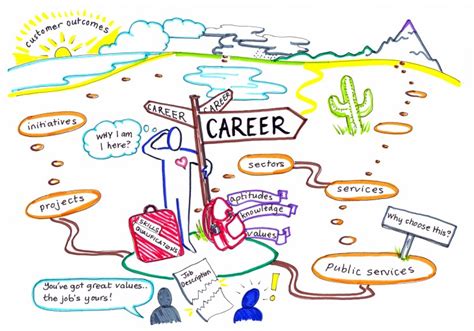 customer outcomes
CAREER
CAREER
CAREER
initiatives
WHY AM I
HERE?
sectors
services
projects
aptitudes
knowledge
values
SKILLS
QUALIFICATIONS
Why choose this?
Public services
Job
Description
You've got great values..
the job's yours!
!